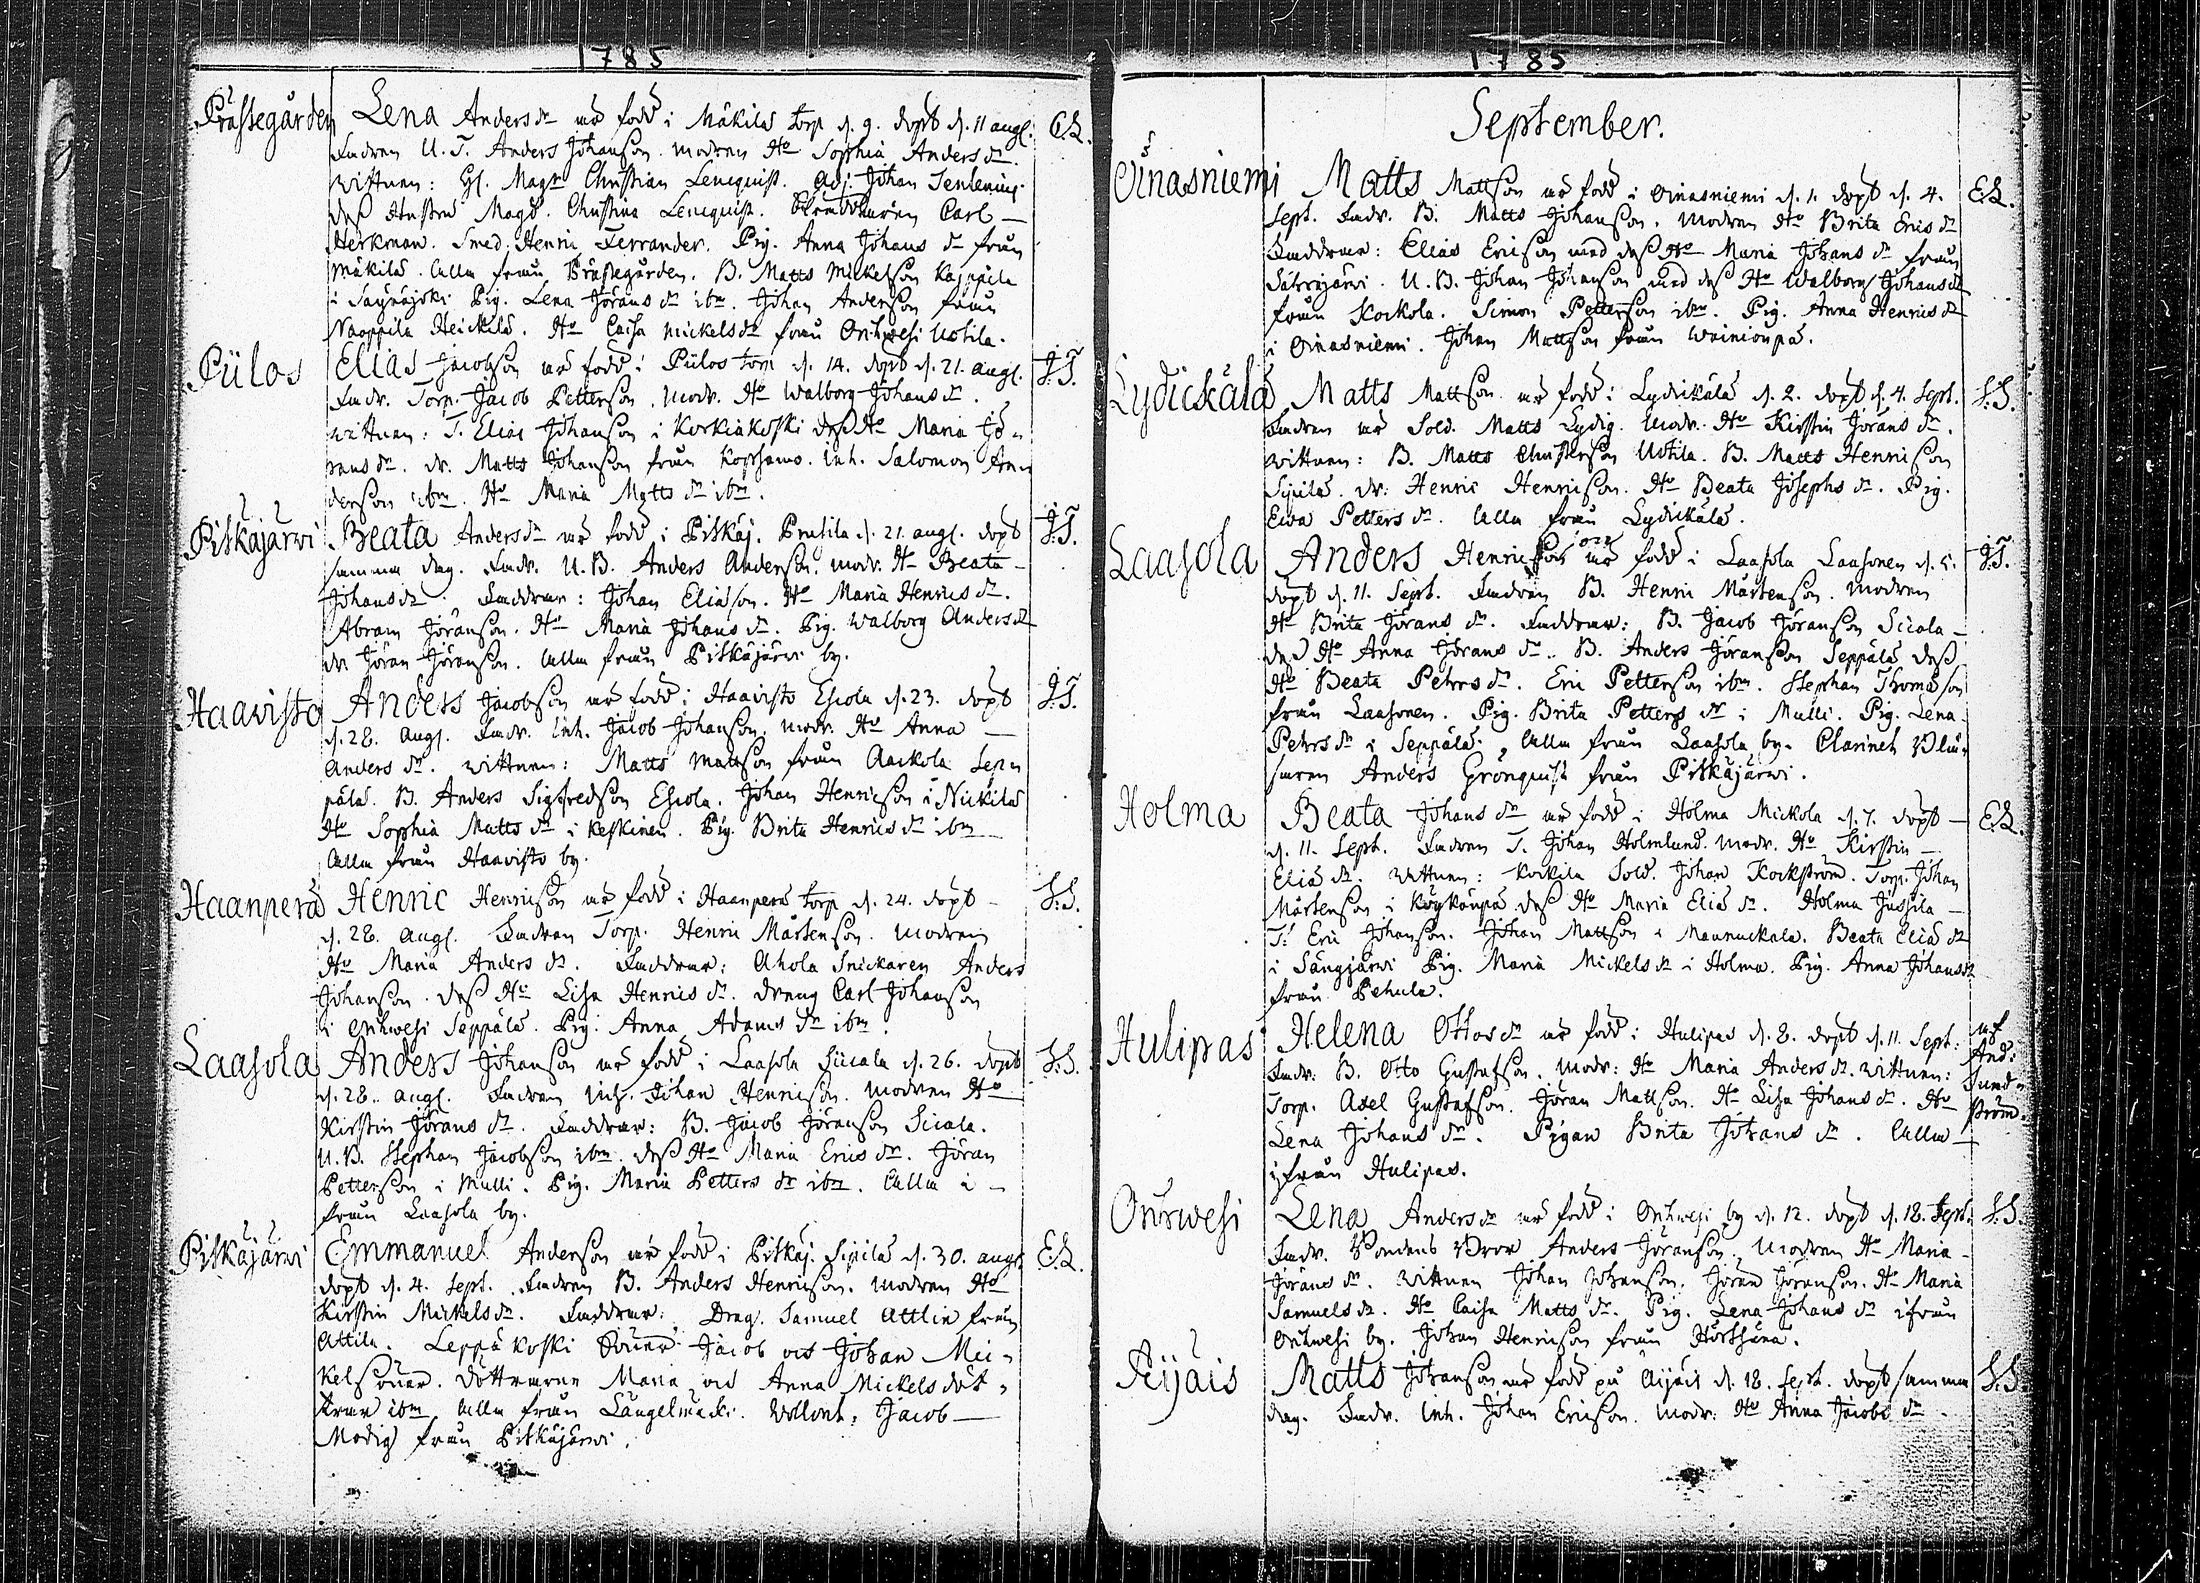 1785
Prästegården Lena Andersdr är född i Mäkilä torp d. 9. döpt d. 11 aug. C.L.
Fadren U. T. Anders Johanson. modren Ho Sophia Andersdr.
wittnen: H. Magr Christian Lencquist. adj. Johan Tenlenius.
des Hustru Magd. Christina Lencquist. Carl
Herkman. Smed. Henric Ferrander. Pig. Anna Johans dr från
Mäkilä. alla från Prästegården. B. Matts Mickelson Kappila
i Säynäjoki Pig. Lena Jörans dr ibm. Johan Anderson från
Noappila Heickilä. Ho Caisa Mickelsdr från Orihwesi Uotila.
Pülos Elias Jacobson är född i Pülos torp d. 14. döpt d. 21. aug. J.T.
Fadr. Torp. Jacob Petterson. modr. Ho Walborg Johans dr.
wittnen: T. Elias Johanson i Korkiakoski des Ho Maria Jö-
rans dr. dr. Matts Johanson från Kopsamo. Inh. Salomon An-
derson ibm. Ho Maria Matts dr ibm.
Pitkäjärwi Beata Andersdr är född i Pitkäj. Prutila d. 21. aug. döpt J.T.
samma dag. Fadr. U. B. Anders Anderson. modr. Ho Beata
Johans dr. Faddrar: Johan Eliason. Ho Maria Henrics dr.
Abram Jöranson. Ho Maria Johans dr. Pig. Walborg Anders dr
dr. Jöran Jöranson. alla från Pitkäjärwi by.
Haavisto Anders Jacobson är född i Haavisto Eskola d. 23. döpt J.T.
d. 28. aug. Fadr. Inh. Jacob Johanson. modr. Ho Anna
Anders dr. wittnen: Matts Mattson från Aackola Sep-
pälä. B. Anders Sigfredson Eskola. Johan Henricson i Nickilä
Ho Sophia Matts dr i Keskinen. Pig. Brita Henrics dr ibm
alla från Haavisto by.
Haanperä Henric Henricson är född i Haanperä torp d. 24. döpt S.S.
d. 28. aug. Fadren Torp. Henric Mårtenson. modren
Ho Maria Anders dr. Faddrar: Ahola Snickaren Anders
Johanson. des Ho Lisa Henrics dr. dreng Carl Johanson
i Orihwesi Seppälä. Pig. Anna Adams dr ibm.
Laasola Anders Johanson är född i Laasola Siicala d. 26. döpt S.S.
d. 28. aug. Fadren Inh. Johan Henricson. modren Ho
Kirstin Jörans dr. Faddrar: B. Jacob Jöranson Siicala.
U. B. Stephan Jacobson ibm. des Ho Maria Erics dr. Jöran
Petterson i Mulli. Pig. Maria Petters dr ibm. alla i-
från Laasola by.
Pitkäjärwi Emmanuel Anderson är född i Pitkäj. Sipilä d. 30. aug. E.L.
döpt d. 4. Sept. Fadren B. Anders Henricson. modren Ho
Kirstin Mickelsdr. Faddrar: Drag. Samuel Attlin från
Attila. Leppäkoski Söner Jacob och Johan Mic-
kelsöner. döttrarne Maria och Anna Mickelsdöt-
trar ibm alla från Längelmäki. Jacob
Modig från Pitkäjärwi.
1785
September.
Oinasniemi Matts Mattson är född i Oinasniemi d. 1. döpt d. 4. E.L.
Sept. Fadr. B. Matts Johanson. modren Ho Brita Erics dr
Faddrar: Elias Ericson med des Ho Maria Johans dr från
Säkräjärwi. U. B. Johan Johanson med des Ho Walborg Johansdr
från Kockola. Simon Petterson ibm. Pig. Anna Henrics dr
i Oinasniemi. Johan Mattson från Wainionpä.
Lydickälä Matts Mattson är född i Lydickälä d. 2. döpt d. 4. Sept. S.S.
Fadren är Sold. Matts Lydig. modr. Ho Kirstin Jörans dr.
wittnen: B. Matts Christerson Uotila. B. Matts Henricson
Sipilä. dr: Henric Henricson. Ho Beata Josephs dr. Pig.
Ewa Petters dr. alla från Lydickälä.
Laasola Anders Henricson är född i Laasola Laasonen d. 5. J.T.
döpt d. 11. Sept. Fadren B. Henric Mårtenson. modren
Ho Brita Jörans dr. Faddrar: B. Jacob Jöranson Siicala
des Ho Anna Jörans dr. B. Anders Jöranson Seppälä des
Ho Beata Pehrs dr. Eric Petterson ibm. Stephan Thomason
från Laasonen. Pig. Brita Petters dr i Mulli. Pig. Lena
Pehrs dr i Seppälä. alla från Laasola by. Clarinet Blå-
saren Anders Grönquist från Pitkäjärwi.
Holma Beata Johans dr är född i Holma Mickola d. 7. döpt E.L.
d. 11. Sept. Fadren T. Johan Holmlund. modr. Ho Kirstin
Elias dr. wittnen: Kockila Sold. Johan Kockström. Torp. Johan
Mårtenson i Köykänpä des Ho Maria Elias dr. Holma Jussila
T. Eric Johanson. Johan Mattson i Mannuckala. Beata Elias dr
i Sängjärwi Pig. Maria Mickels dr i Holma. Pig. Anna Johansdr
från Pehula.
Hulipas Helena Ottosdr är född i Hulipas d. 8. döpt d. 11. Sept. af And: Sund-ström.
Fadr. B. Otto Gustafson. modr: Ho Maria Anders dr. wittnen:
Torp. Axel Gustafson. Jöran Mattson. Ho Lisa Johans dr. Ho
Lena Johans dr. Pigan Brita Johans dr. alla
ifrån Hulipas.
Orihwesi Lena Andersdr är född i Orihwesi by d. 12. döpt d. 18. Sept. S.S.
Fadr. Bondens Bror Anders Jöranson. modren Ho Maria
Jörans dr. wittnen Johan Johanson. Jöran Jöranson. Ho Maria
Samuels dr. Ho Caisa Matts dr. Pig. Lena Johans dr ifrån
Orihwesi by. Johan Henricson från Hörtsänä.
Äijäis Matts Johanson är född på Äijäis d. 18. Sept. döpt samma S.S.
dag. Fadr. Inh. Johan Ericson. modr. Ho Anna Jacobs dr